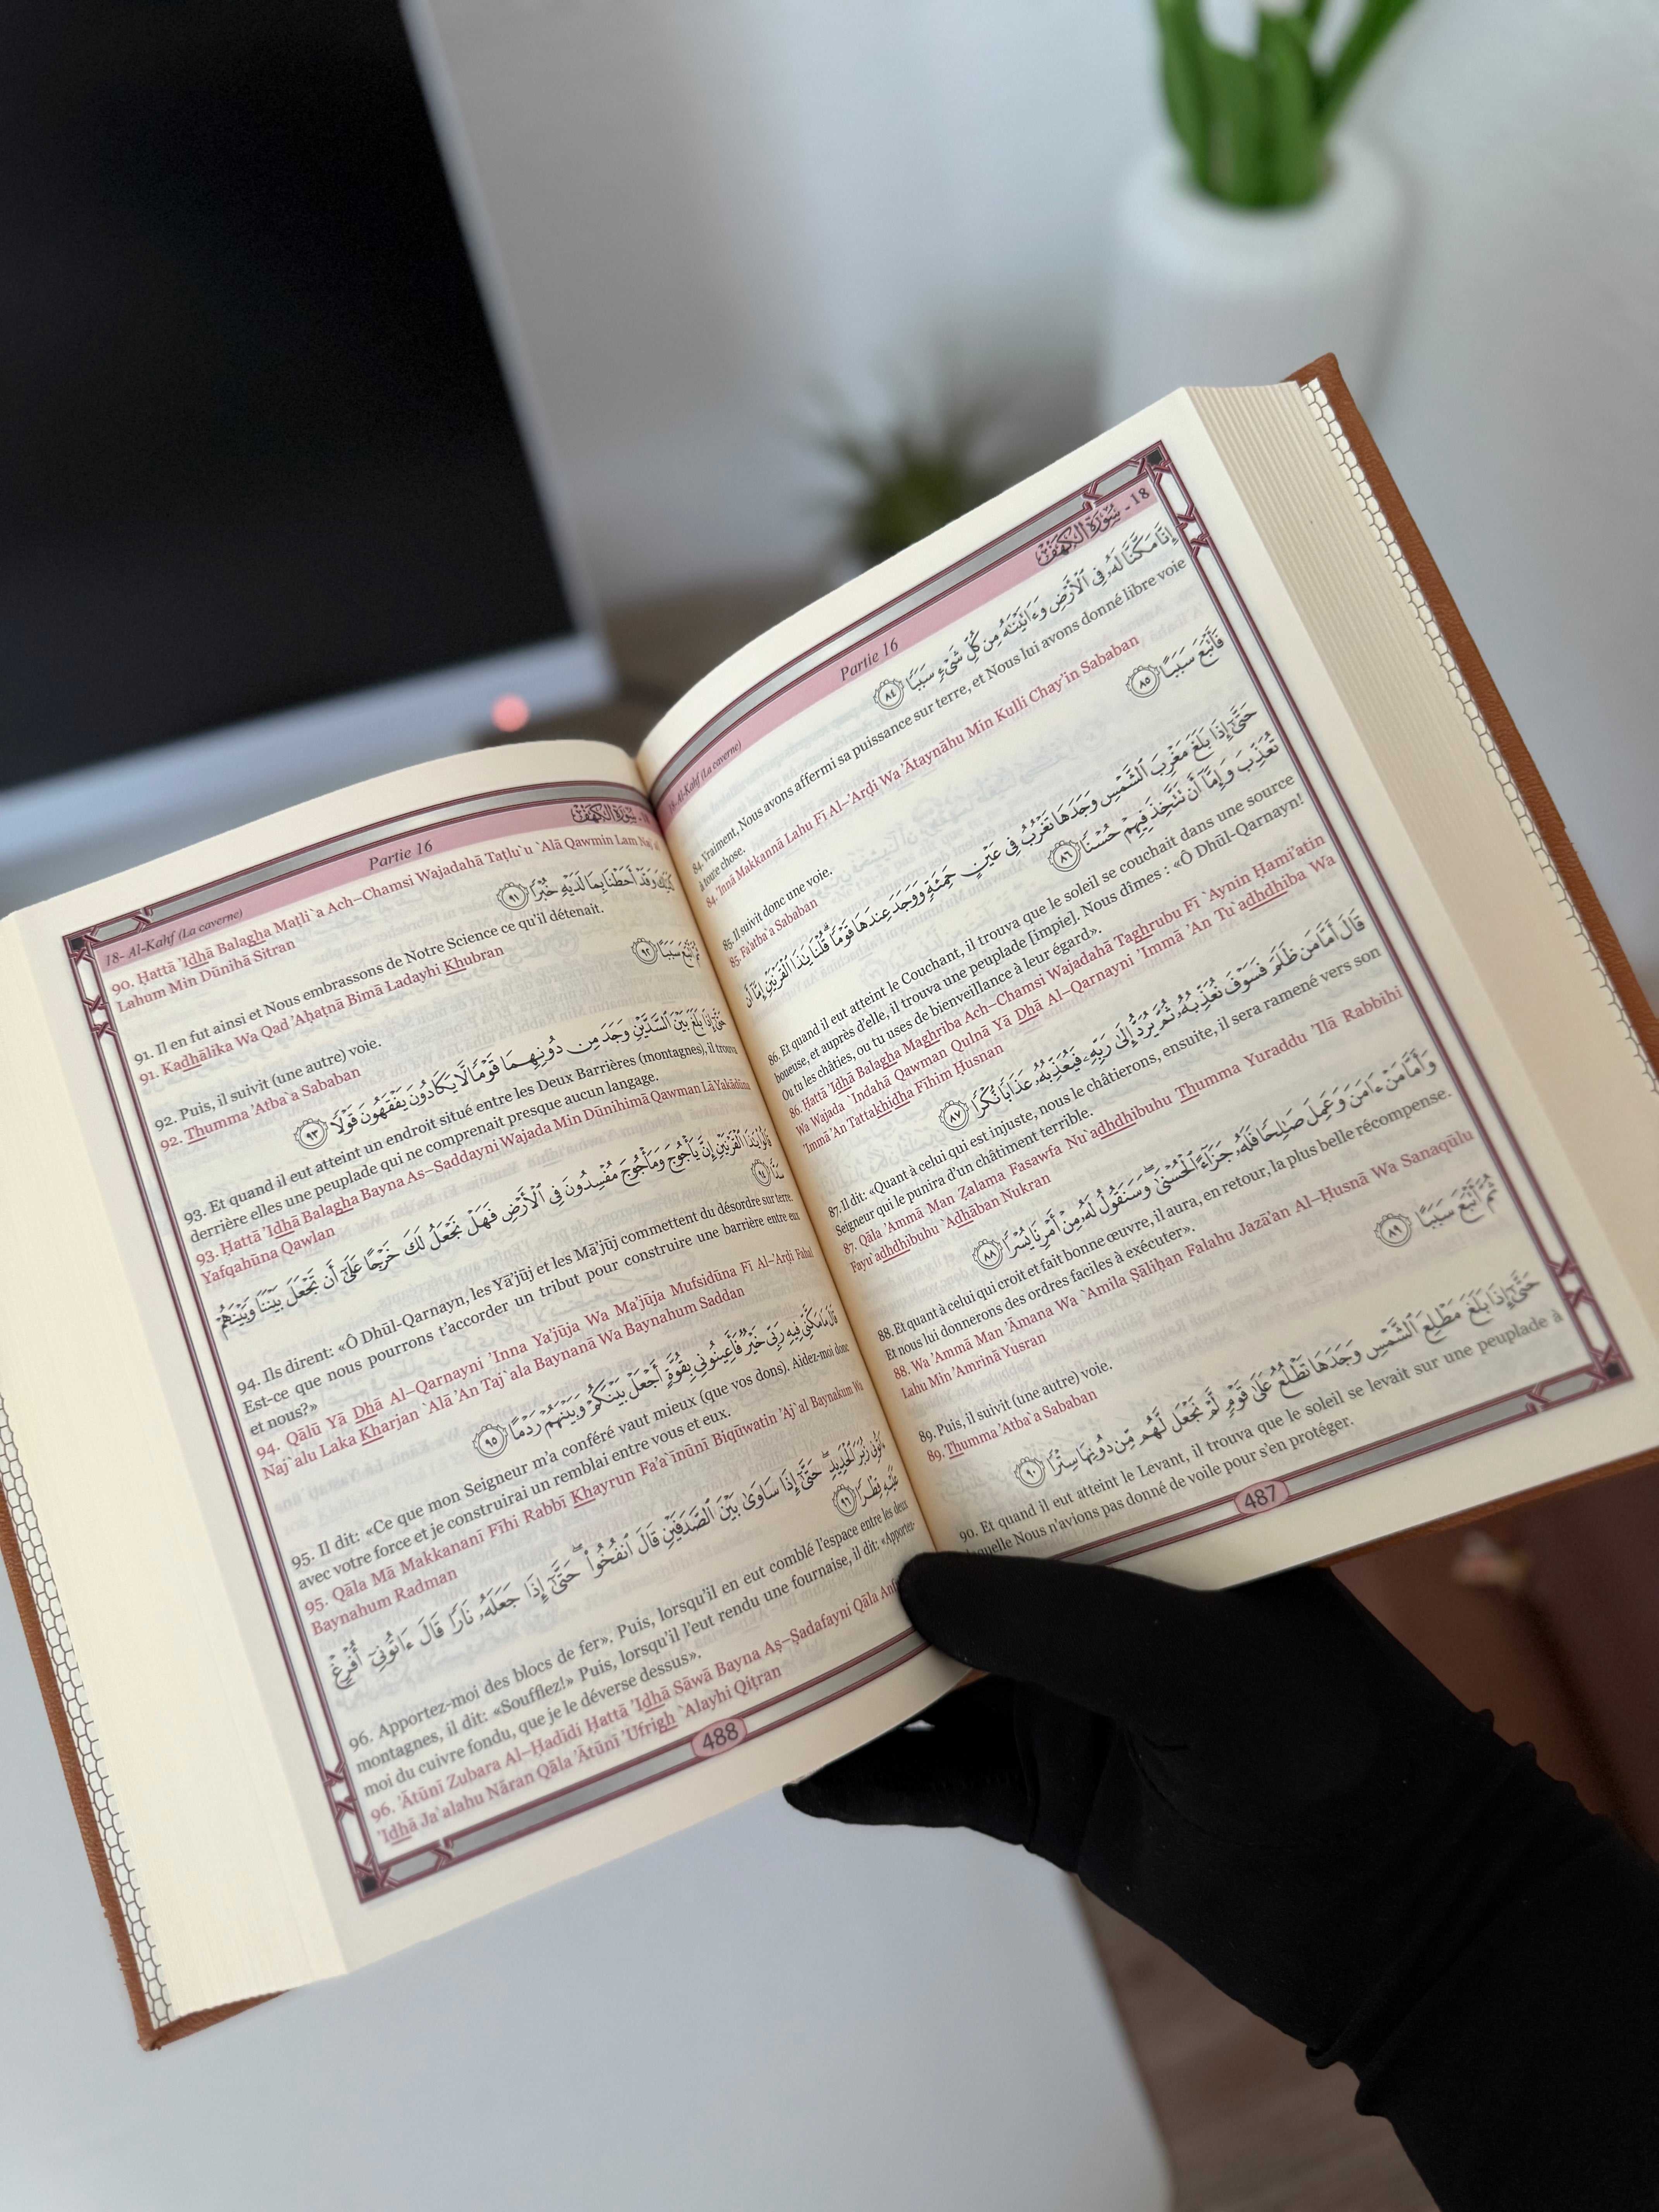 18- Al-Kahf (La caverne) Partie 16 سُورَةُ الكَهْفِ - 18
إِنَّا مَكَّنَّا لَهُۥ فِي ٱلۡأَرۡضِ وَءَاتَيۡنَٰهُ مِن كُلِّ شَيۡءٖ سَبَبٗا ٨٤
84. Vraiment, Nous avons affermi sa puissance sur terre, et Nous lui avons donné libre voie
à toute chose.
84. 'Innā Makkannā Lahu Fī Al–'Arḍi Wa 'Ātaynāhu Min Kulli Chay'in Sababan
فَأَتۡبَعَ سَبَبًا ٨٥
85. Il suivit donc une voie.
85. Fa'atba`a Sababan
حَتَّىٰٓ إِذَا بَلَغَ مَغۡرِبَ ٱلشَّمۡسِ وَجَدَهَا تَغۡرُبُ فِي عَيۡنٍ حَمِئَةٖ وَوَجَدَ عِندَهَا قَوۡمٗاۖ قُلۡنَا يَٰذَا ٱلۡقَرۡنَيۡنِ إِمَّآ أَن
تُعَذِّبَ وَإِمَّآ أَن تَتَّخِذَ فِيهِمۡ حُسۡنٗا ٨٦
86. Et quand il eut atteint le Couchant, il trouva que le soleil se couchait dans une source
boueuse, et auprès d'elle, il trouva une peuplade [impie]. Nous dîmes : «Ô Dhūl-Qarnayn!
Ou tu les châties, ou tu uses de bienveillance à leur égard».
86. Ḥattā 'Idhā Balagha Maghriba Ach–Chamsi Wajadahā Taghrubu Fī `Aynin Ḥami'atin
Wa Wajada `Indahā Qawman Qulnā Yā Dhā Al–Qarnayni 'Immā 'An Tu`adhdhiba Wa
'Immā 'An Tattakhidha Fīhim Ḥusnan
قَالَ أَمَّا مَن ظَلَمَ فَسَوۡفَ نُعَذِّبُهُۥ ثُمَّ يُرَدُّ إِلَىٰ رَبِّهِۦ فَيُعَذِّبُهُۥ عَذَابٗا نُّكۡرٗا ٨٧
87. Il dit: «Quant à celui qui est injuste, nous le châtierons, ensuite, il sera ramené vers son
Seigneur qui le punira d'un châtiment terrible.
87. Qāla 'Ammā Man Ẓalama Fasawfa Nu`adhdhibuhu Thumma Yuraddu 'Ilā Rabbihi
Fayu`adhdhibuhu `Adhāban Nukran
وَأَمَّا مَنۡ ءَامَنَ وَعَمِلَ صَٰلِحٗا فَلَهُۥ جَزَآءً ٱلۡحُسۡنَىٰۖ وَسَنَقُولُ لَهُۥ مِنۡ أَمۡرِنَا يُسۡرٗا ٨٨
88. Et quant à celui qui croit et fait bonne œuvre, il aura, en retour, la plus belle récompense.
Et nous lui donnerons des ordres faciles à exécuter».
88. Wa 'Ammā Man 'Āmana Wa `Amila Ṣāliḥan Falahu Jazā'an Al–Ḥusnā Wa Sanaqūlu
Lahu Min 'Amrinā Yusran
ثُمَّ أَتۡبَعَ سَبَبًا ٨٩
89. Puis, il suivit (une autre) voie.
89. Thumma 'Atba`a Sababan
حَتَّىٰٓ إِذَا بَلَغَ مَطۡلِعَ ٱلشَّمۡسِ وَجَدَهَا تَطۡلُعُ عَلَىٰ قَوۡمٖ لَّمۡ نَجۡعَل لَّهُم مِّن دُونِهَا سِتۡرٗا ٩٠
90. Et quand il eut atteint le Levant, il trouva que le soleil se levait sur une peuplade à
laquelle Nous n'avions pas donné de voile pour s'en protéger.
487
18- Al-Kahf (La caverne) Partie 16 سُورَةُ الكَهْفِ
90. Ḥattā 'Idhā Balagha Maṭli`a Ach–Chamsi Wajadahā Taṭlu`u `Alā Qawmin Lam Naj`al
Lahum Min Dūnihā Sitran
كَذَٰلِكَۖ وَقَدۡ أَحَطۡنَا بِمَا لَدَيۡهِ خُبۡرٗا ٩١
91. Il en fut ainsi et Nous embrassons de Notre Science ce qu'il détenait.
91. Kadhālika Wa Qad 'Aḥaṭnā Bimā Ladayhi Khubran
ثُمَّ أَتۡبَعَ سَبَبًا ٩٢
92. Puis, il suivit (une autre) voie.
92. Thumma 'Atba`a Sababan
حَتَّىٰٓ إِذَا بَلَغَ بَيۡنَ ٱلسَّدَّيۡنِ وَجَدَ مِن دُونِهِمَا قَوۡمٗا لَّا يَكَادُونَ يَفۡقَهُونَ قَوۡلٗا ٩٣
93. Et quand il eut atteint un endroit situé entre les Deux Barrières (montagnes), il trouva
derrière elles une peuplade qui ne comprenait presque aucun langage.
93. Ḥattā 'Idhā Balagha Bayna As–Saddayni Wajada Min Dūnihimā Qawman Lā Yakādūna
Yafqahūna Qawlan
قَالُواْ يَٰذَا ٱلۡقَرۡنَيۡنِ إِنَّ يَأۡجُوجَ وَمَأۡجُوجَ مُفۡسِدُونَ فِي ٱلۡأَرۡضِ فَهَلۡ نَجۡعَلُ لَكَ خَرۡجًا عَلَىٰٓ أَن تَجۡعَلَ بَيۡنَنَا وَبَيۡنَهُمۡ
سَدّٗا ٩٤
94. Ils dirent: «Ô Dhūl-Qarnayn, les Yā'jūj et les Mā'jūj commettent du désordre sur terre.
Est-ce que nous pourrons t'accorder un tribut pour construire une barrière entre eux
et nous?»
94. Qālū Yā Dhā Al–Qarnayni 'Inna Ya'jūja Wa Ma'jūja Mufsidūna Fī Al–'Arḍi Fahal
Naj`alu Laka Kharjan `Alā 'An Taj`ala Baynanā Wa Baynahum Saddan
قَالَ مَا مَكَّنِّي فِيهِ رَبِّي خَيۡرٞ فَأَعِينُونِي بِقُوَّةٍ أَجۡعَلۡ بَيۡنَكُمۡ وَبَيۡنَهُمۡ رَدۡمًا ٩٥
95. Il dit: «Ce que mon Seigneur m'a conféré vaut mieux (que vos dons). Aidez-moi donc
avec votre force et je construirai un remblai entre vous et eux.
95. Qāla Mā Makkananī Fīhi Rabbī Khayrun Fa'a`īnūnī Biqūwatin 'Aj`al Baynakum Wa
Baynahum Radman
ءَاتُونِي زُبَرَ ٱلۡحَدِيدِۖ حَتَّىٰٓ إِذَا سَاوَىٰ بَيۡنَ ٱلصَّدَفَيۡنِ قَالَ ٱنفُخُواْۖ حَتَّىٰٓ إِذَا جَعَلَهُۥ نَارٗا قَالَ ءَاتُونِيٓ أُفۡرِغۡ
عَلَيۡهِ قِطۡرٗا ٩٦
96. Apportez-moi des blocs de fer». Puis, lorsqu'il en eut comblé l'espace entre les deux
montagnes, il dit: «Soufflez!» Puis, lorsqu'il l'eut rendu une fournaise, il dit: «Apportez-
moi du cuivre fondu, que je le déverse dessus».
96. 'Ātūnī Zubara Al–Ḥadīdi Ḥattā 'Idhā Sāwā Bayna Aṣ–Ṣadafayni Qāla
'Idhā Ja`alahu Nāran Qāla 'Ātūnī 'Ufrigh `Alayhi Qiṭran
488